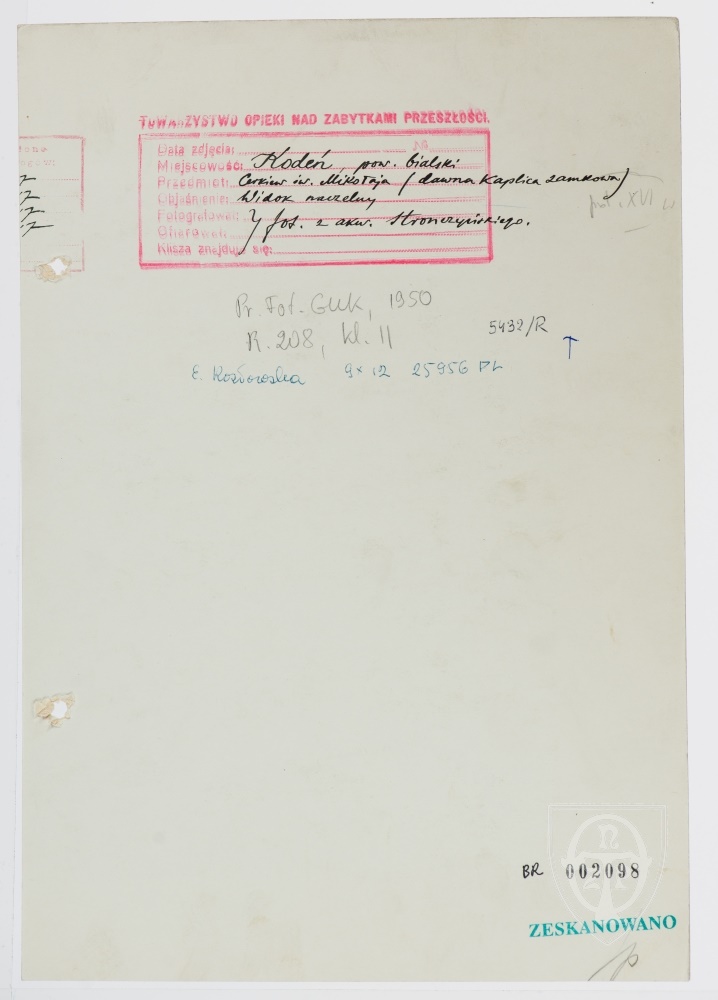 TOWARZYSTWO OPIEKI NAD ZABYTKAMI PRZESZŁOŚCI.
Data zdjęcia: №
Miejscowość: Kodeń pow. bialski
Przedmiot: Cerkiew św. Mikołaja (dawna Kaplica zamkowa)
Objaśnienie: Widok naczelny
Fotografował: fot. z akw. Stronczyńskiego.
Ofiarował:
Klisza znajduje się:
XVI w
Pr. Fot. GUK, 1950
R. 208, kl. 11
5432/R
E. Kozłowska 9x12 25956 PL
BR 002098
ZESKANOWANO